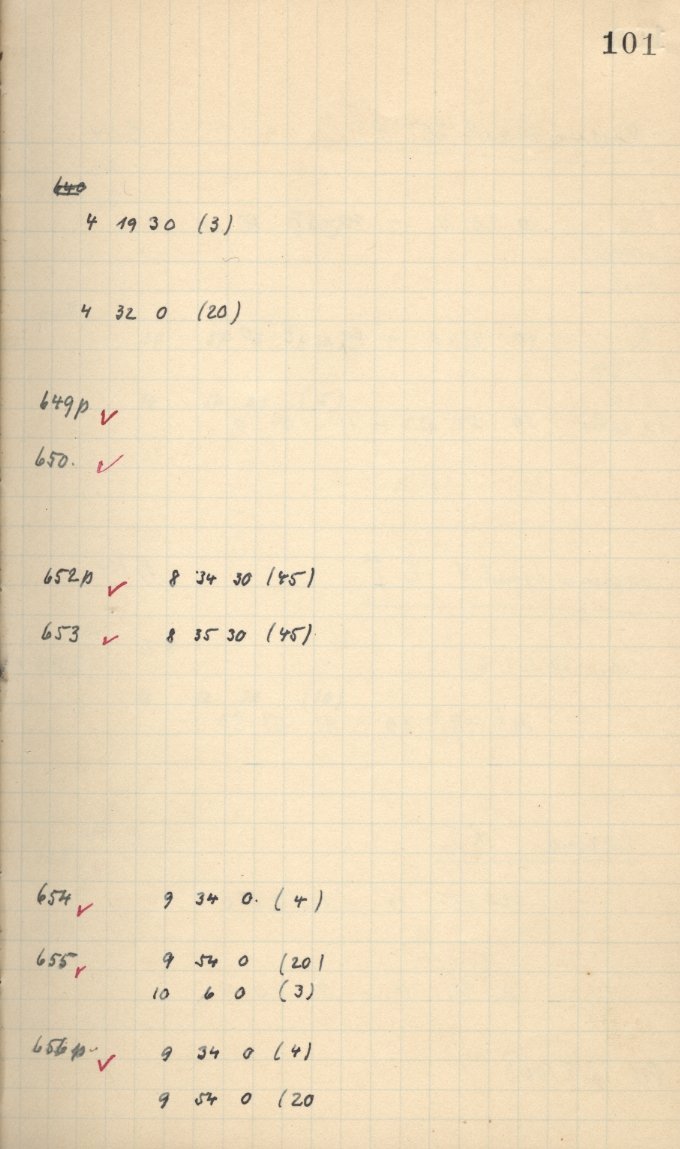 101
640
4 19 30 (3)
4 32 0 (20)
649p ✓
650. ✓
652p ✓ 8 34 30 (45)
653 ✓ 8 35 30 (45)
654 ✓ 9 34 0. (4)
655 ✓ 9 54 0 (20)
10 6 0 (3)
656p ✓ 9 34 0 (4)
9 54 0 (20